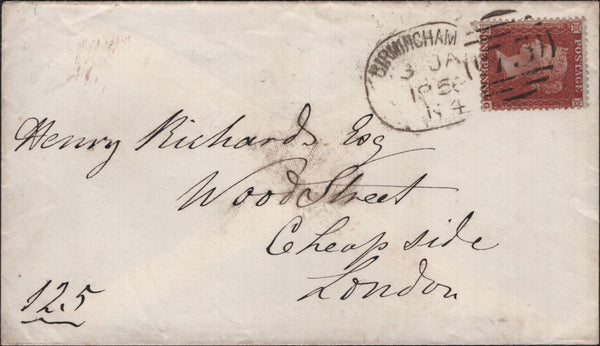 BIRMINGHAM
3 JA
1856
N 4
POSTAGE
ONE PENNY
Henry Richards Esq
Wood Street
Cheapside
London
12.5